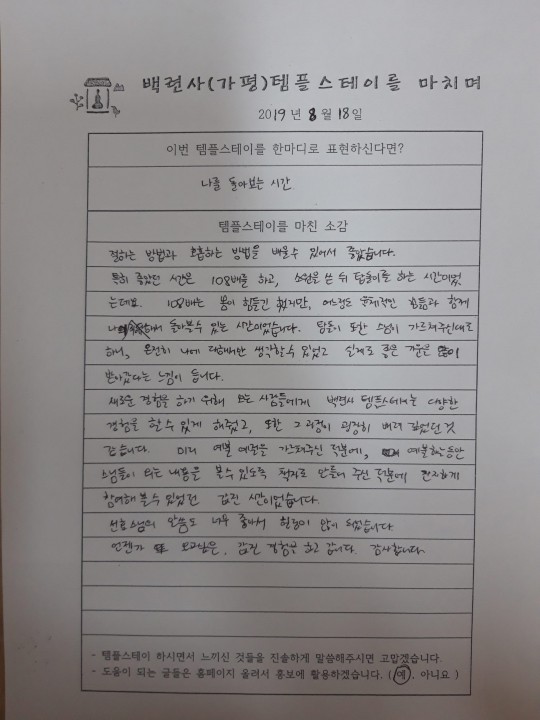 백련사(가평)템플스테이를 마치며
2019년 8월 18일
이번 템플스테이를 한마디로 표현하신다면?
나를 돌아보는 시간
템플스테이를 마친 소감
절하는 방법과 호흡하는 방법을 배울수 있어서 좋았습니다.
특히 좋았던 시간은 108배를 하고, 소원을 쓴 뒤 탑돌이를 하는 시간이었
는데요. 108배는 몸이 힘들긴 했지만, 어느정도 육체적인 힘듦과 함께
돌아볼수 있는 시간이었습니다. 탑돌이 또한 스님이 가르쳐주신대로
하니, 온전히 나에 대해서만 생각할수 있었고 실제로 좋은 기운을 많이
받아갔다는 느낌이 듭니다.
새로운 경험을 하기 위해 오는 사람들에게 백련사 템플스테이는 다양한
경험을 할 수 있게 해주었고, 또한 그 과정이 굉장히 배려 있었던 것
같습니다. 미리 예불 예절을 가르쳐주신 덕분에, 예불하는동안
스님들이 외는 내용을 볼수 있도록 책자로 만들어 주신 덕분에 편하게
참여해 볼수 있었던 값진 시간이었습니다.
스님의 말씀도 너무 좋아서 힐링이 많이 되었습니다.
언젠가 또 오고싶은, 값진 경험을 하고 갑니다. 감사합니다.
- 템플스테이 하시면서 느끼신 것들을 진솔하게 말씀해주시면 고맙겠습니다.
- 도움이 되는 글들은 홈페이지 올려서 홍보에 활용하겠습니다. ( 예, 아니요 )